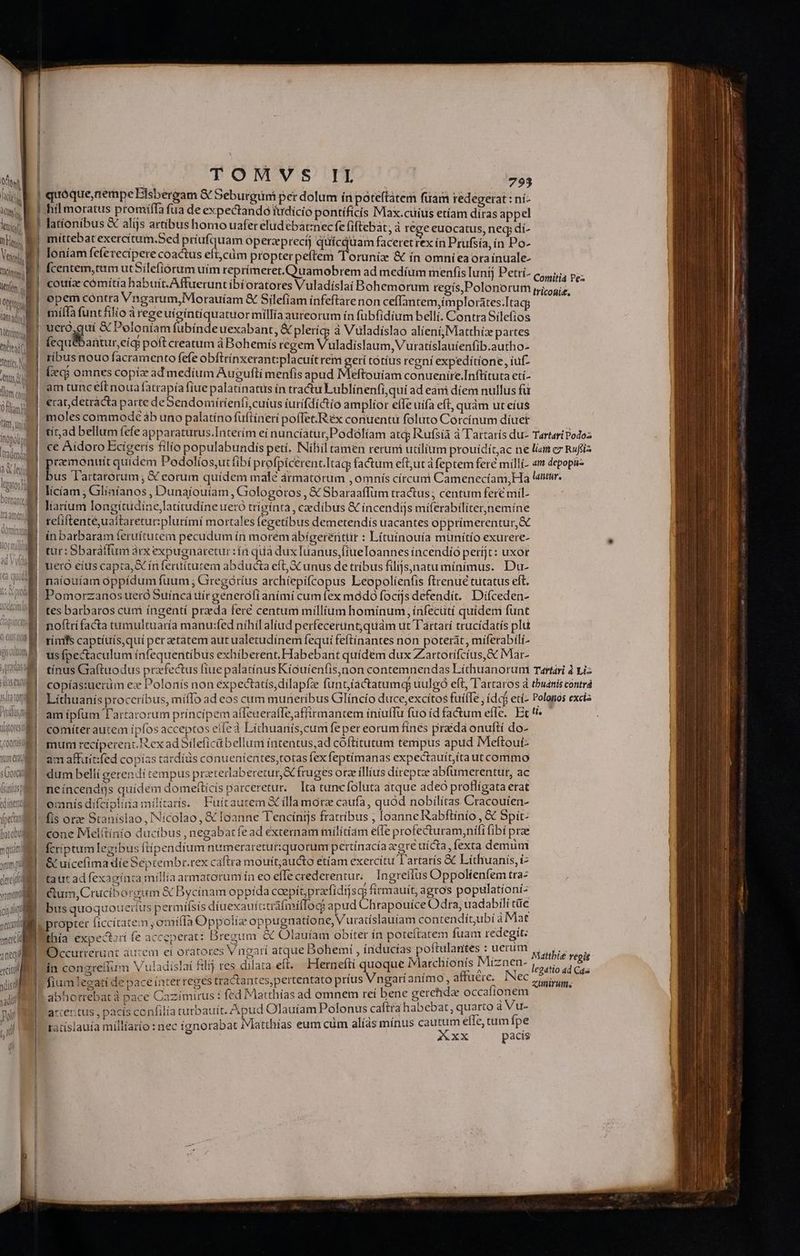 TOMVS II. 793
quoque, nempe Elsbergam & Seburgum per dolum in potestatem suam redegerat: ni-
hil moratus promissa sua de expectando iudicio pontificis Max. cuius etiam diras appel
lationibus & alijs artibus homo uafer eludebat: nec se sistebat, à rege euocatus, neq; di-
mittebat exercitum. Sed priusquam operæprecij quicquam faceret rex in Prussia, in Po-
loniam sese recipere coactus est, cùm propter pestem Toruniæ & in omni ea ora inuale-
scentem, tum ut Silesiorum uim reprimeret. Quamobrem ad medium mensis Iunij Petri-
couiæ comitia habuit. Affuerunt ibi oratores Vuladislai Bohemorum regis, Polonorum
opem contra Vngarum, Morauiam & Silesiam infestare non cessantem, implorātes. Itaq;
missa sunt filio à rege uigintiquatuor millia aureorum in subsidium belli. Contra Silesios
uerò, qui & Poloniam subinde uexabant, & pleriq; à Vuladislao alieni, Matthiæ partes
sequebantur, eiq; post creatum à Bohemis regem Vuladislaum, Vuratislauiensib. autho-
ribus nouo sacramento sese obstrinxerant: placuit rem geri totius regni expeditione, ius-
sæq; omnes copiæ ad medium Augusti mensis apud Mestouiam conuenire. Instituta eti-
am tunc est noua satrapia siue palatinatus in tractu Lublinensi, qui ad eam diem nullus su
erat, detracta parte de Sendomiriensi, cuius iurisdictio amplior esse uisa est, quàm ut eius
moles commodè ab uno palatino sustineri posset. Rex conuentu soluto Corcinum diuer
tit, ad bellum sese apparaturus. Interim ei nunciatur, Podoliam atq; Russiã à Tartaris du-
ce Aidoro Ecigeris filio populabundis peti. Nihil tamen rerum utilium prouidit, ac ne
præmonuit quidem Podolios, ut sibi prospicerent. Itaq; factum est, ut à septem ferè milli-
bus Tartarorum, & eorum quidem malè armatorum, omnis circum Camenecciam, Ha
liciam, Glinianos, Dunaiouiam, Gologoros, & Sbaraassum tractus, centum ferè mil-
liarium longitudine, latitudine uerò triginta, cædibus & incendijs miserabiliter, nemine
resistente, uastaretur: plurimi mortales segetibus demetendis uacantes opprimerentur, &
in barbaram seruitutem pecudum in morem abigerentur: Lituinouia munitio exurere-
tur: Sbarassum arx expugnaretur: in qua dux Iuanus, siue Ioannes incendio perijt: uxor
uerò eius capta, & in seruitutem abducta est, & unus de tribus filijs, natu minimus. Du-
naiouiam oppidum suum, Gregorius archiepiscopus Leopoliensis strenuè tutatus est.
Pomorzanos uerò Suinca uir generosi animi cum sex mōdò socijs defendit. Disceden-
tes barbaros cum ingenti præda ferè centum millium hominum, insecuti quidem sunt
nostri facta tumultuaria manu: sed nihil aliud perfecerunt, quàm ut Tartari trucidatis plu
rimis captiuis, qui per ætatem aut ualetudinem sequi festinantes non poterāt, miserabili-
us spectaculum insequentibus exhiberent. Habebant quidem dux Zartorificius, & Mar-
tinus Gastuodus præfectus siue palatinus Kiouiensis, non contemnendas Lithuanorum
copias: uerùm eæ Polonis non expectatis, dilapsæ sunt, iactatumq; uulgò est, Tartaros à
Lithuanis proceribus, misso ad eos cum muneribus Glincio duce, excitos fuisse, idq; eti-
am ipsum Tartarorum principem asseuerasse, affirmantem iniussu suo id factum esse. Et
comiter autem ipsos acceptos esse à Lithuanis, cum se per eorum fines præda onusti do-
mum reciperent. Rex ad Silesicū bellum intentus, ad cōstitutum tempus apud Mestoui-
am affuit: sed copias tardius conuenientes, totas sex septimanas expectauit, ita ut commo
dum belli gerendi tempus præterlaberetur, & fruges oræ illius direptæ absumerentur, ac
ne incendijs quidem domesticis parceretur. Ita tunc soluta atque adeò profligata erat
omnis disciplina militaris. Fuit autem & illa moræ causa, quòd nobilitas Cracouien-
sis oræ Stanislao, Nicolao, & Ioanne Tencinijs fratribus, Ioanne Rabstinio, & Spit-
cone Melstinio ducibus, negabat se ad externam militiam esse profecturam, nisi sibi præ
scriptum legibus stipendium numeraretur: quorum pertinacia ægrè uicta, sexta demum
& uicesima die Septembr. rex castra mouit, aucto etiam exercitu Tartaris & Lithuanis, i-
taut ad sexaginta millia armatorum in eo esse crederentur. Ingressus Oppoliensem tra-
ctum, Cruciborgum & Bycinam oppida cœpit, præsidijsq; firmauit, agros populationi-
bus quoquouersus permissis diuexauit: trāsmissoq; apud Chrapouice Odra, uadabili tūc
propter siccitatem, omissa Oppoliæ oppugnatione, Vuratislauiam contendit, ubi à Mat
thia expectari se acceperat: Bregum & Olauiam obiter in potestatem suam redegit.
Occurrerunt autem ei oratores Vngari atque Bohemi, inducias postulantes: uerum
in congressum Vuladislai filij res dilata est. Hernesti quoque Marchionis Miznen-
sium legati de pace inter reges tractantes, pertentato prius Vngari animo, affuere. Nec
abhorrebat à pace Cazimirus: sed Matthias ad omnem rei bene gerendæ occasionem
attentus, pacis consilia turbauit. Apud Olauiam Polonus castra habebat, quarto à Vu-
ratislauia milliario: nec ignorabat Matthias eum cùm aliàs minus cautum esse, tum spe
Xxx pacis
Comitia Pe-
tricouiæ.
Tartari Podo-
liam & Russi-
am depopu-
lantur.
Tartari à Li-
thuanis contra
Polonos exci-
ti.
Matthiæ regis
legatio ad Ca-
zimirum.